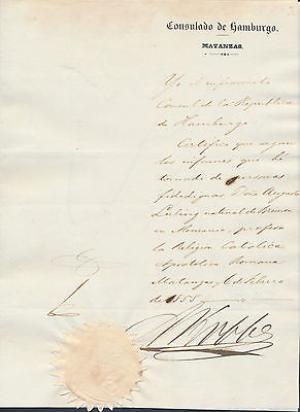 Consulado de Hamburgo.
MATANZAS.
Yo el infrascrito
Consul de la Republica
de Hamburgo
Certifico que segun
los informes que he
tomado de personas
fidedignas Don Augusto
natural de Bremen
en Alemania, profesa
la Religion Catolica
Apostolica Romana
Matanzas 6 de Febrero
de 1855